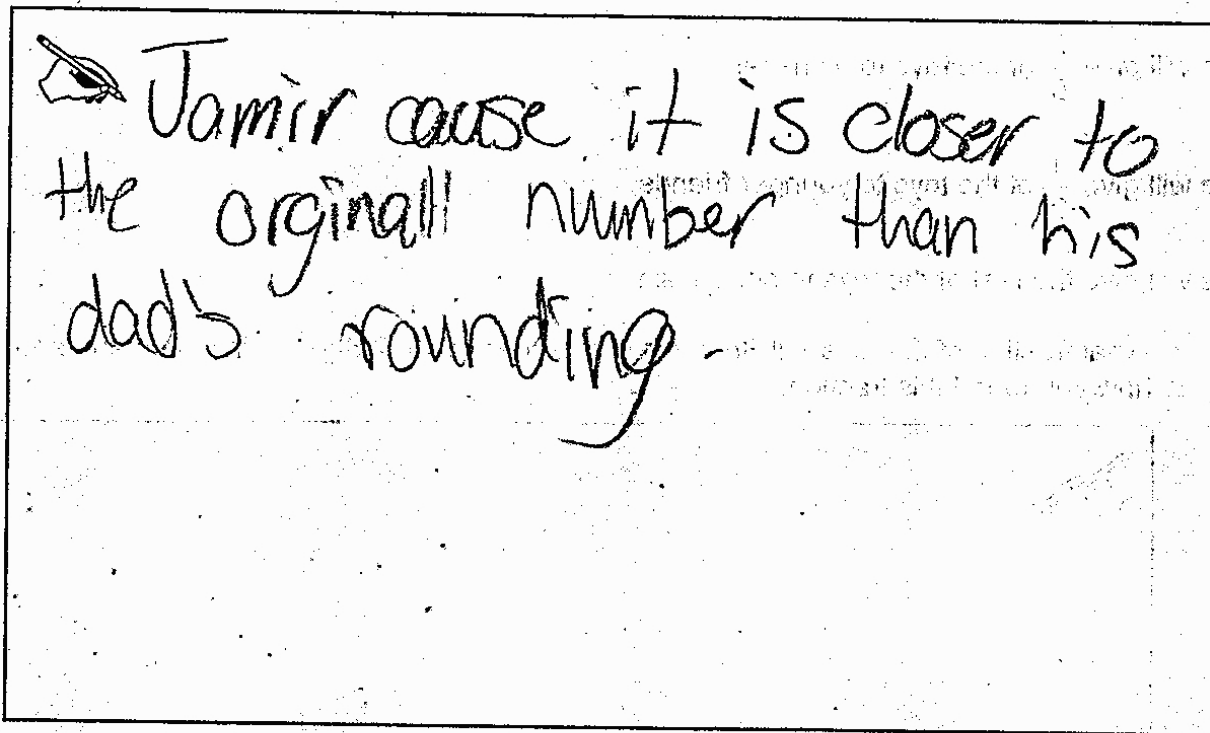 Jamir cause it is closer to
the orginall number than his
dad's rounding.